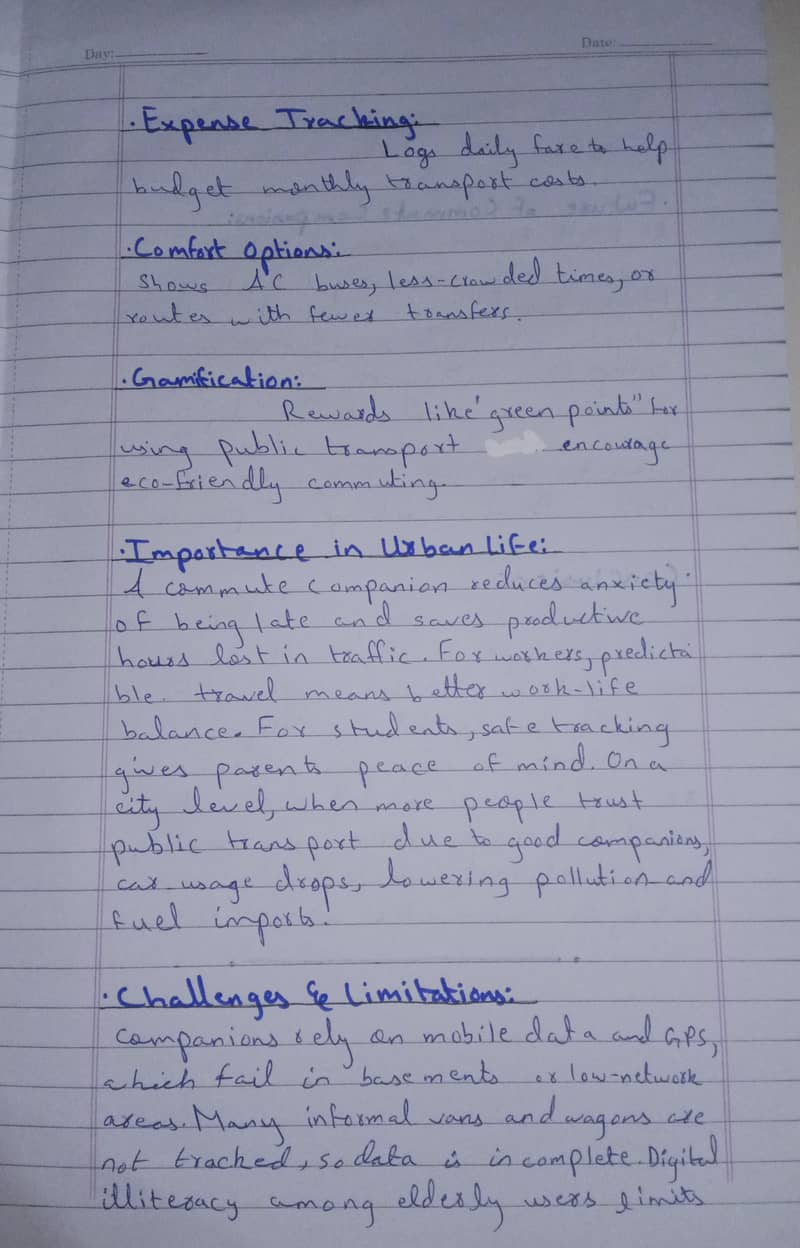 Day:
Date:
· Expense Tracking:
Logs daily fare to help
budget monthly transport costs.
· Comfort Options:
Shows AC buses, less-crowded times, or
routes with fewer transfers.
· Gamification:
Rewards like "green points" for
using public transport encourage
eco-friendly commuting.
· Importance in Urban Life:
A commute companion reduces anxiety
of being late and saves productive
hours lost in traffic. For workers, predicta
ble travel means better work-life
balance. For students, safe tracking
gives parents peace of mind. On a
city level, when more people trust
public transport due to good companions,
car usage drops, lowering pollution and
fuel imports.
· Challenges & Limitations:
Companions rely on mobile data and GPS,
which fail in basements or low-network
areas. Many informal vans and wagons are
not tracked, so data is incomplete. Digital
illiteracy among elderly users limits